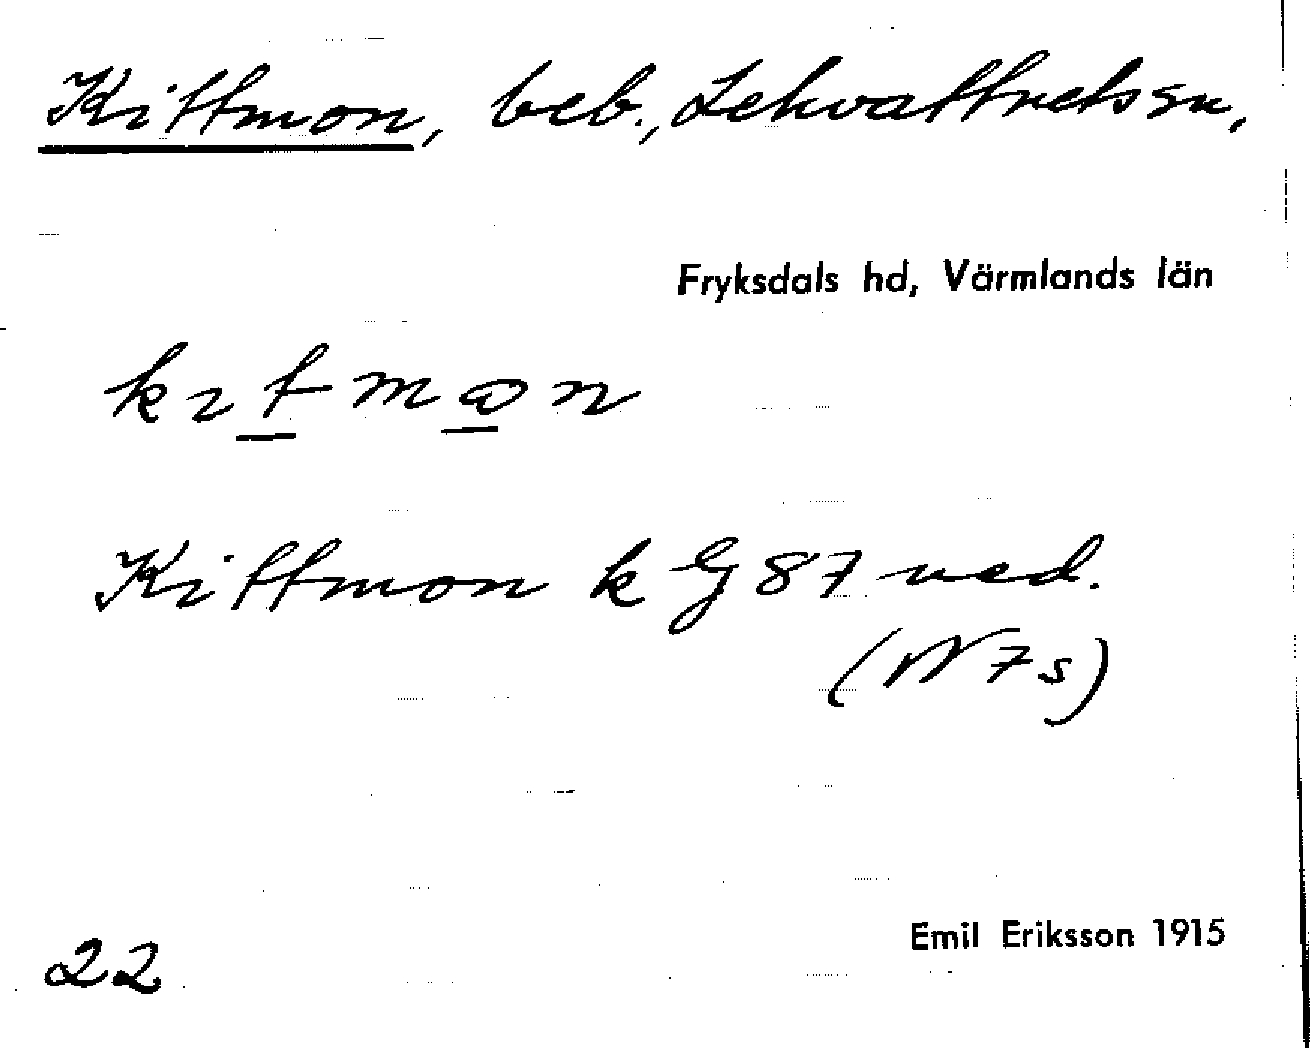 Kittmon, beb., Lekvattnets sn,
Fryksdals hd, Värmlands län
kıtmɷn
Kittmon k G 87 ned.
(W 7s)
Emil Eriksson 1915
22